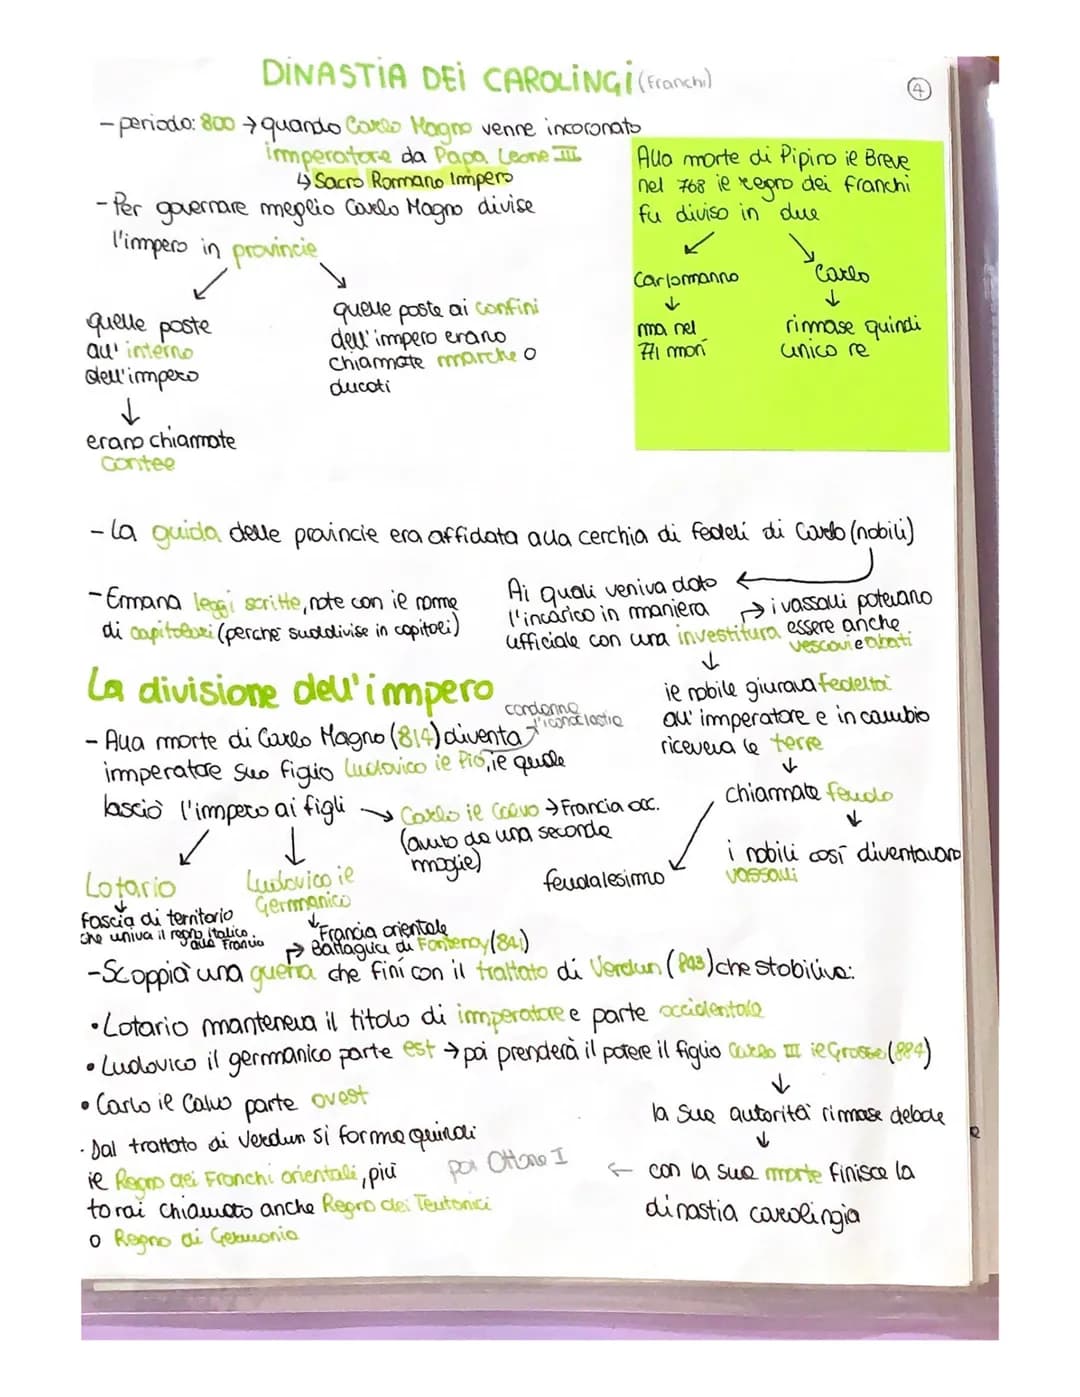 DINASTIA DEI CAROLINGI (Franchi)
4
- periodo: 800 → quando Carlo Magno venne incoronato
imperatore da Papa Leone III
↳ Sacro Romano Impero
- Per governare meglio Carlo Magno divise
l'impero in provincie
quelle poste
all'interno
dell'impero
↓
erano chiamate
contee
quelle poste ai confini
dell'impero erano
chiamate marche o
ducati
Alla morte di Pipino il Breve
nel 768 il regno dei franchi
fu diviso in due
Carlomanno
↓
ma nel
771 morì
Carlo
↓
rimase quindi
unico re
- La guida delle provincie era affidata alla cerchia di fedeli di Carlo (nobili)
- Emana leggi scritte, note con il nome
di capitolari (perchè suddivise in capitoli)
Ai quali veniva dato
l'incarico in maniera
ufficiale con una investitura
→ i vassalli potevano
essere anche
vescovi e abati
↓
il nobile giurava fedeltà
all'imperatore e in cambio
riceveva le terre
↓
chiamate feudo
↓
i nobili così diventavano
vassalli
feudalesimo
La divisione dell'impero
condanna
l'iconoclastia
- Alla morte di Carlo Magno (814) diventa
imperatore suo figlio Ludovico il Pio, il quale
lasciò l'impero ai figli
→ Carlo il Calvo → Francia occ.
(avuto da una seconda
moglie)
Lotario
↓
fascia di territorio
che univa il regno italico
alla Francia
Ludovico il
Germanico
↓
Francia orientale
→ Battaglia di Fontenoy (841)
- Scoppia una guerra che finì con il trattato di Verdun (843) che stabiliva:
• Lotario manteneva il titolo di imperatore e parte occidentale
• Ludovico il germanico parte est → poi prenderà il potere il figlio Carlo III il Grosso (884)
↓
la sua autorità rimase debole
↓
con la sua morte finisce la
dinastia carolingia
• Carlo il Calvo parte ovest
· Dal trattato di Verdun si forma quindi
il Regno dei Franchi orientali, più
tardi chiamato anche Regno dei Teutonici
o Regno di Germania
poi Ottone I ←